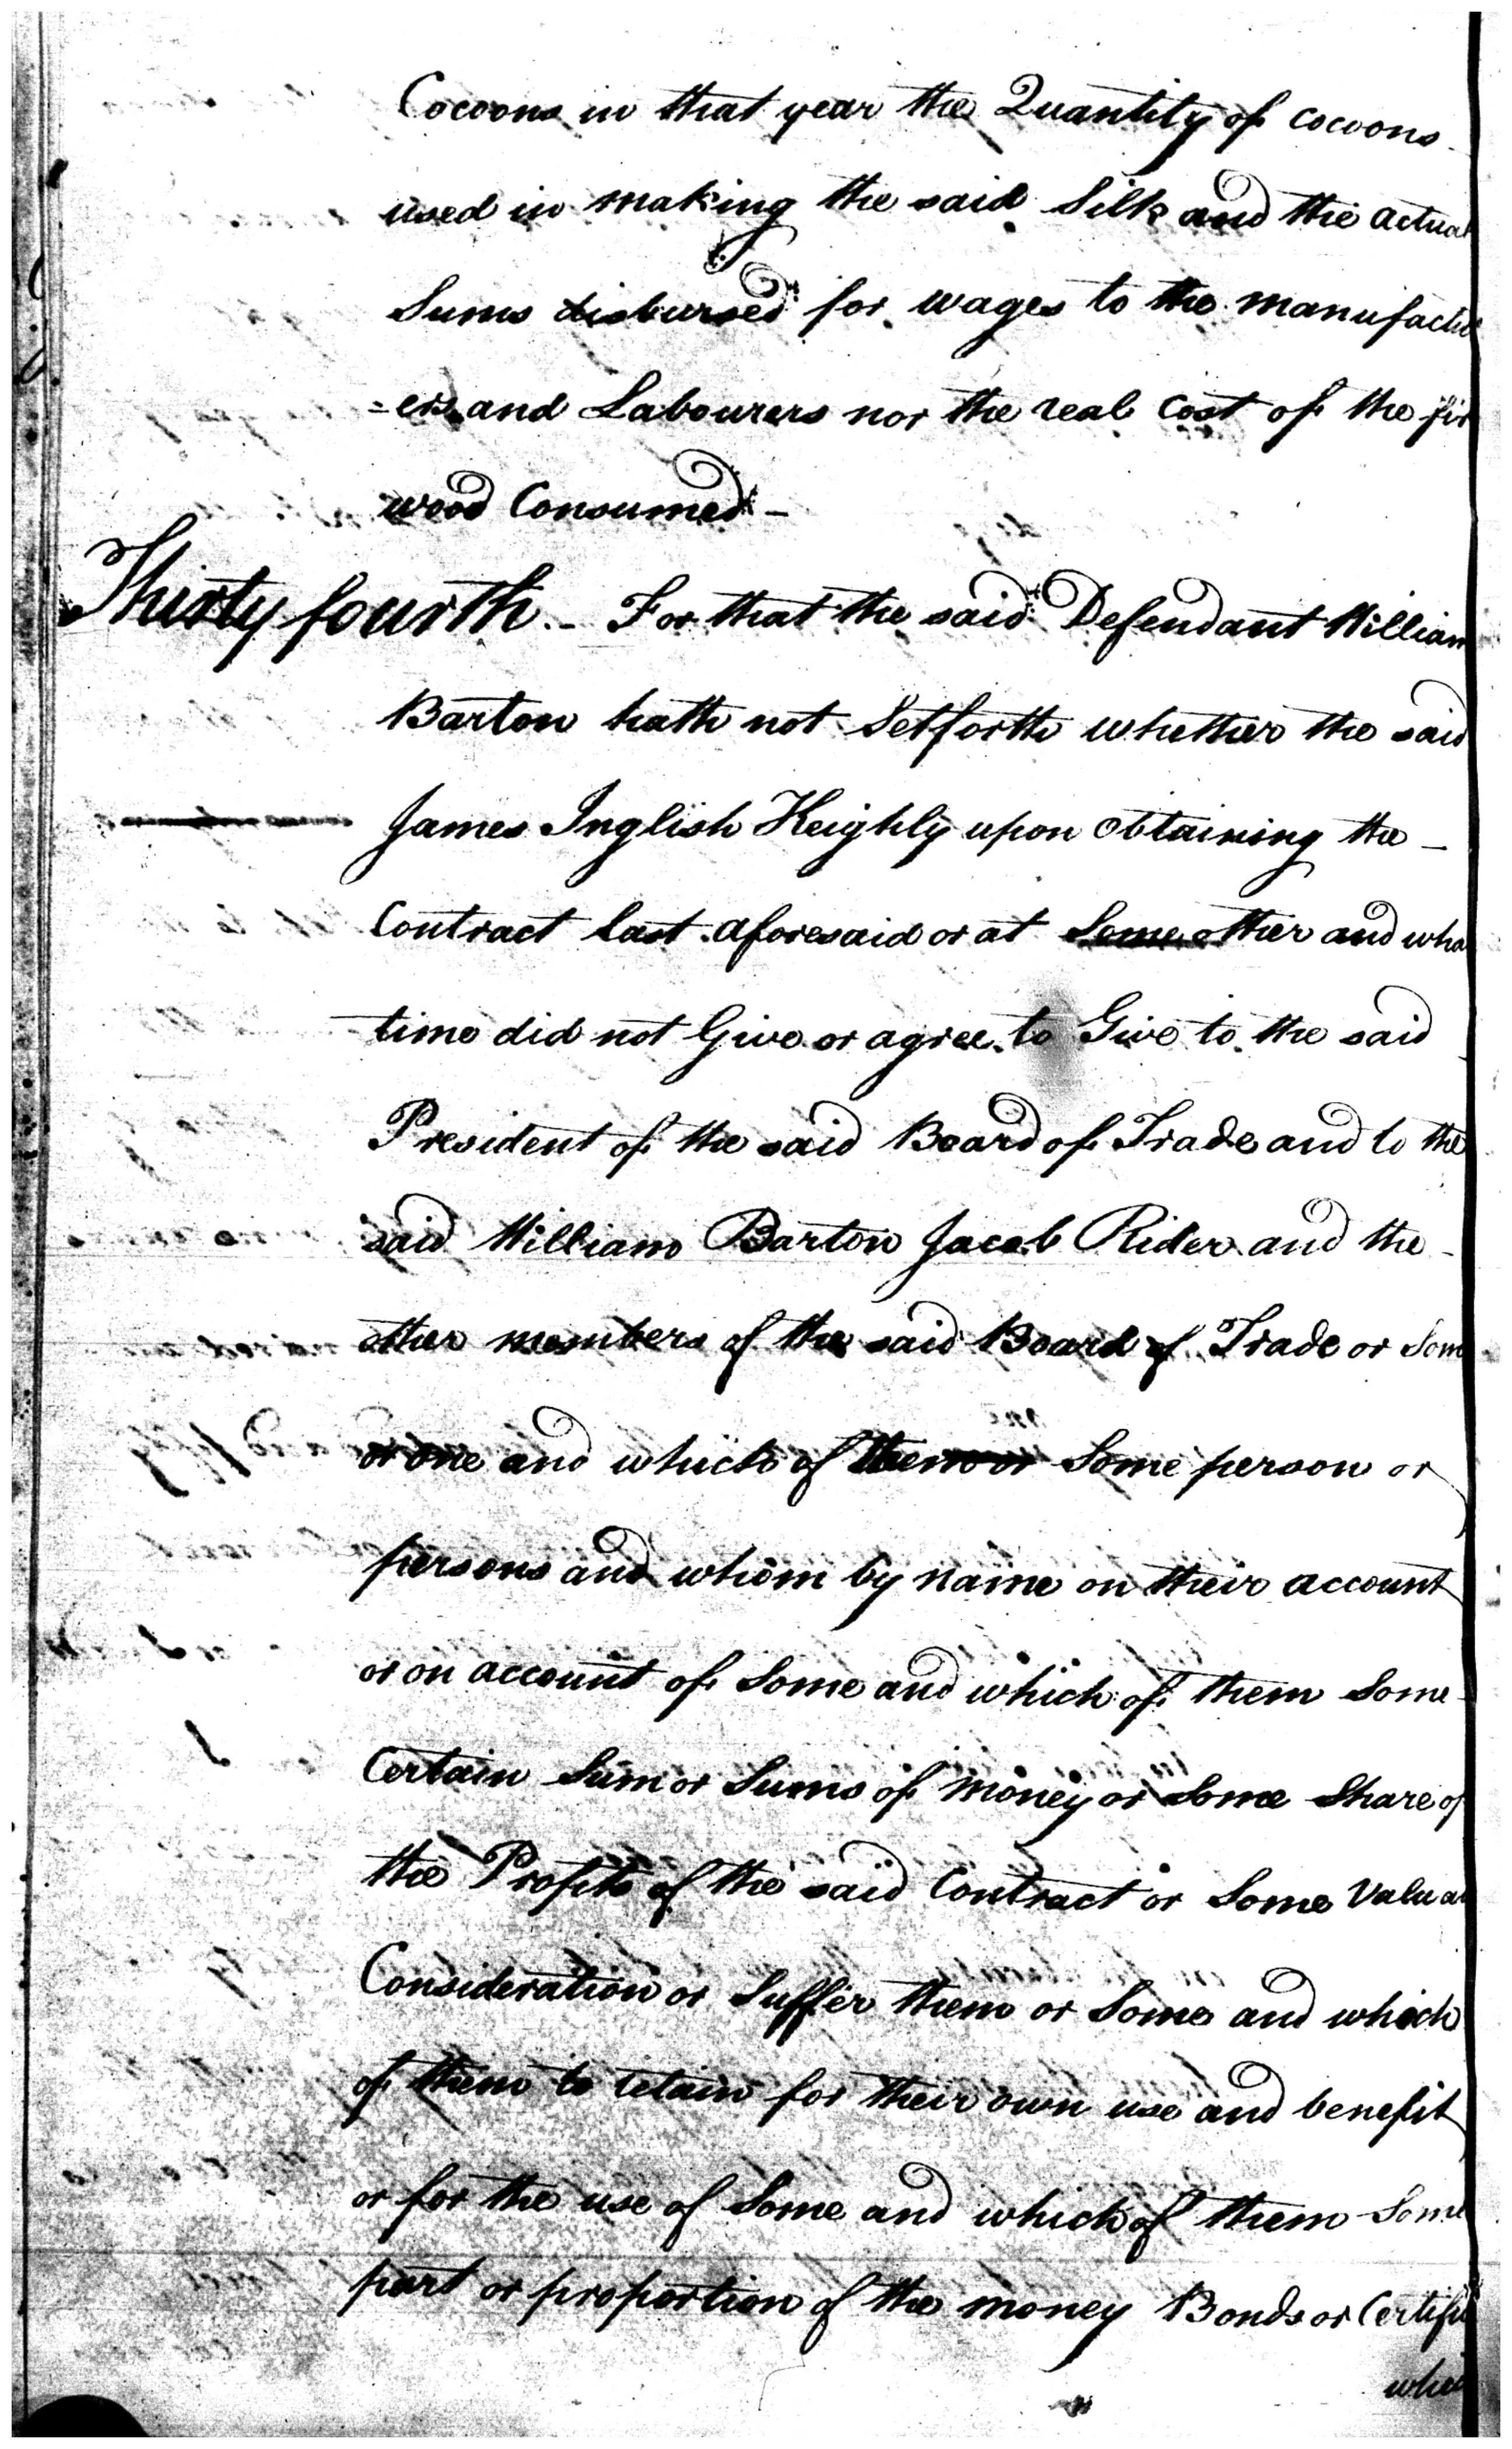 Cocoons in that year the Quantity of Cocoons
used in making the said Silk and the actual
Sums disbursed for wages to the manufactu
=ers and Labourers nor the real Cost of the fir
wood Consumed -
Thirty fourth - For that the said Defendant William
Barton hath not Setforth whether the said
James Inglish Keighly upon obtaining the -
Contract last aforesaid or at Some other and wha
time did not Give or agree to Give to the said
President of the said Board of Trade and to the
said William Barton Jacob Rider and the -
other members of the said Board of Trade or Some
or one and which of them or Some person or
persons and whom by name on their account
or on account of Some and which of them Some -
Certain Sum or Sums of money or Some Share of
the Profits of the said Contract or Some Valua
Consideration or Suffer them or Some and which
of them to retain for their own use and benefit
or for the use of Some and which of them Some
part or proportion of the money Bonds or Certifi
whic